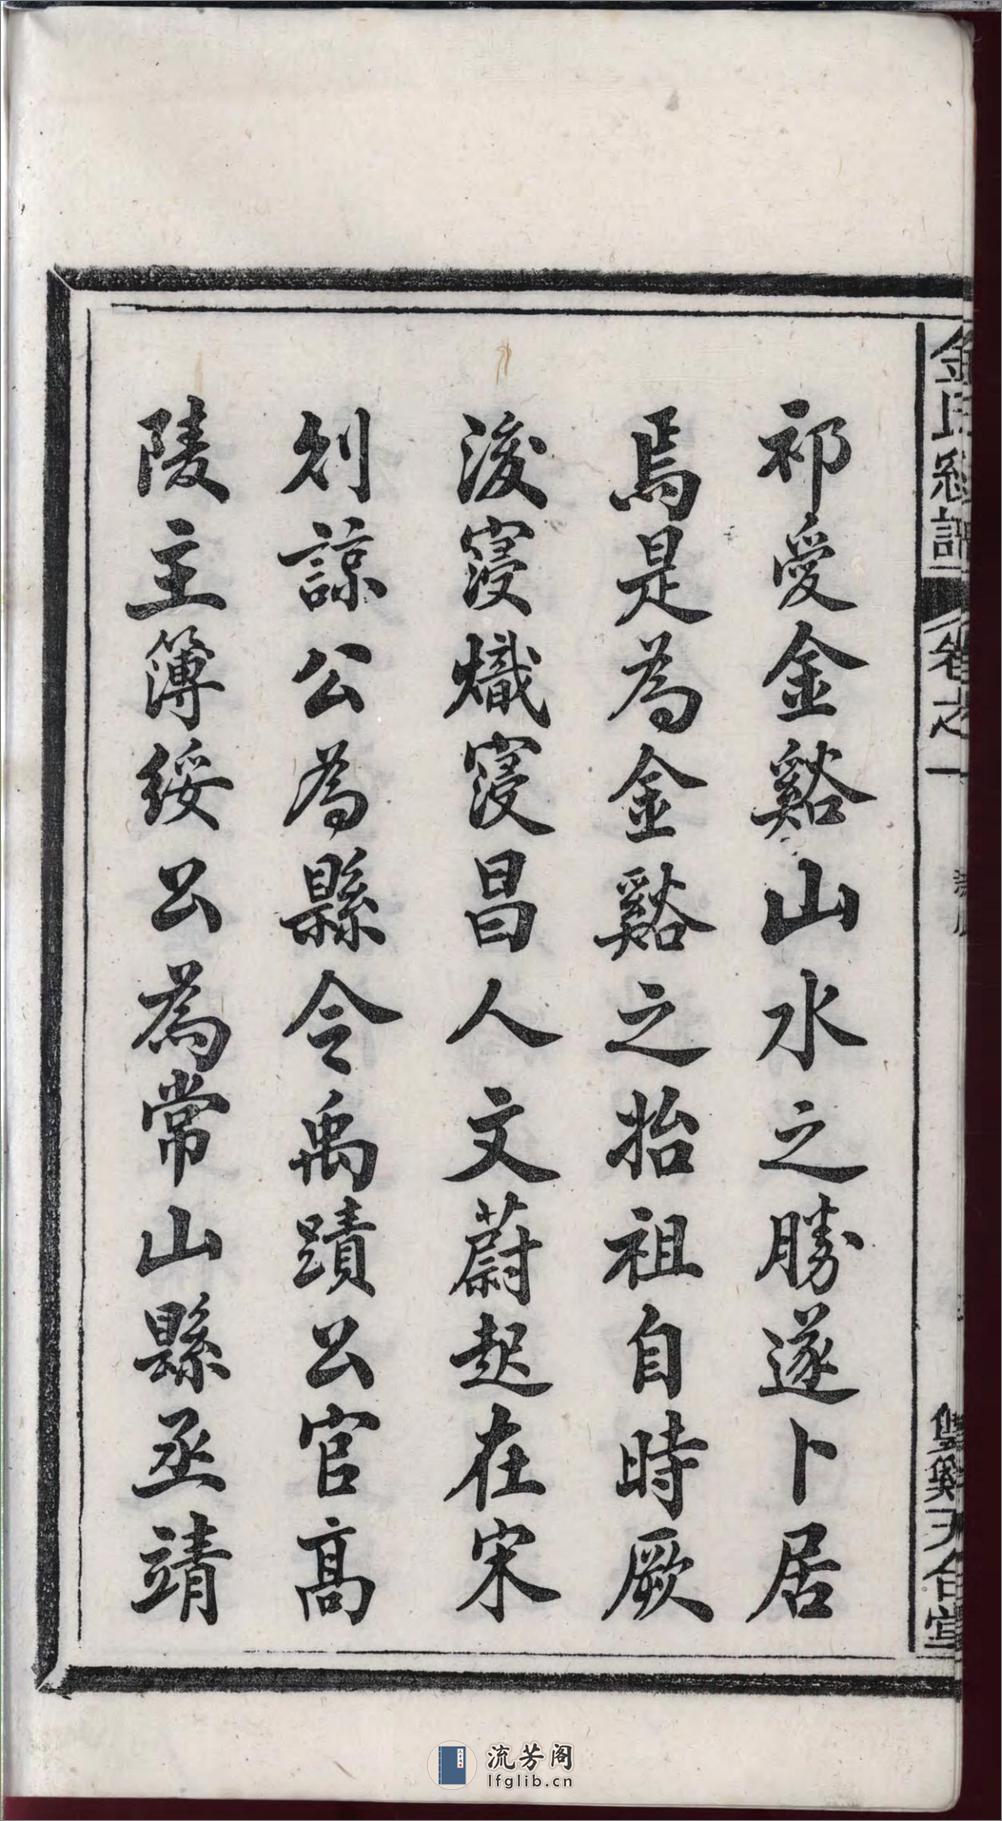 祁愛金谿山水之勝遂卜居
焉是為金谿之抬祖自時厥
後寖熾寖昌人文蔚起在宋
則諒公為縣令禹蹟公官高
陵主簿綏公為常山縣丞靖
金氏總譜
卷之一
雙谿天合堂
流芳阁
lfglib.cn